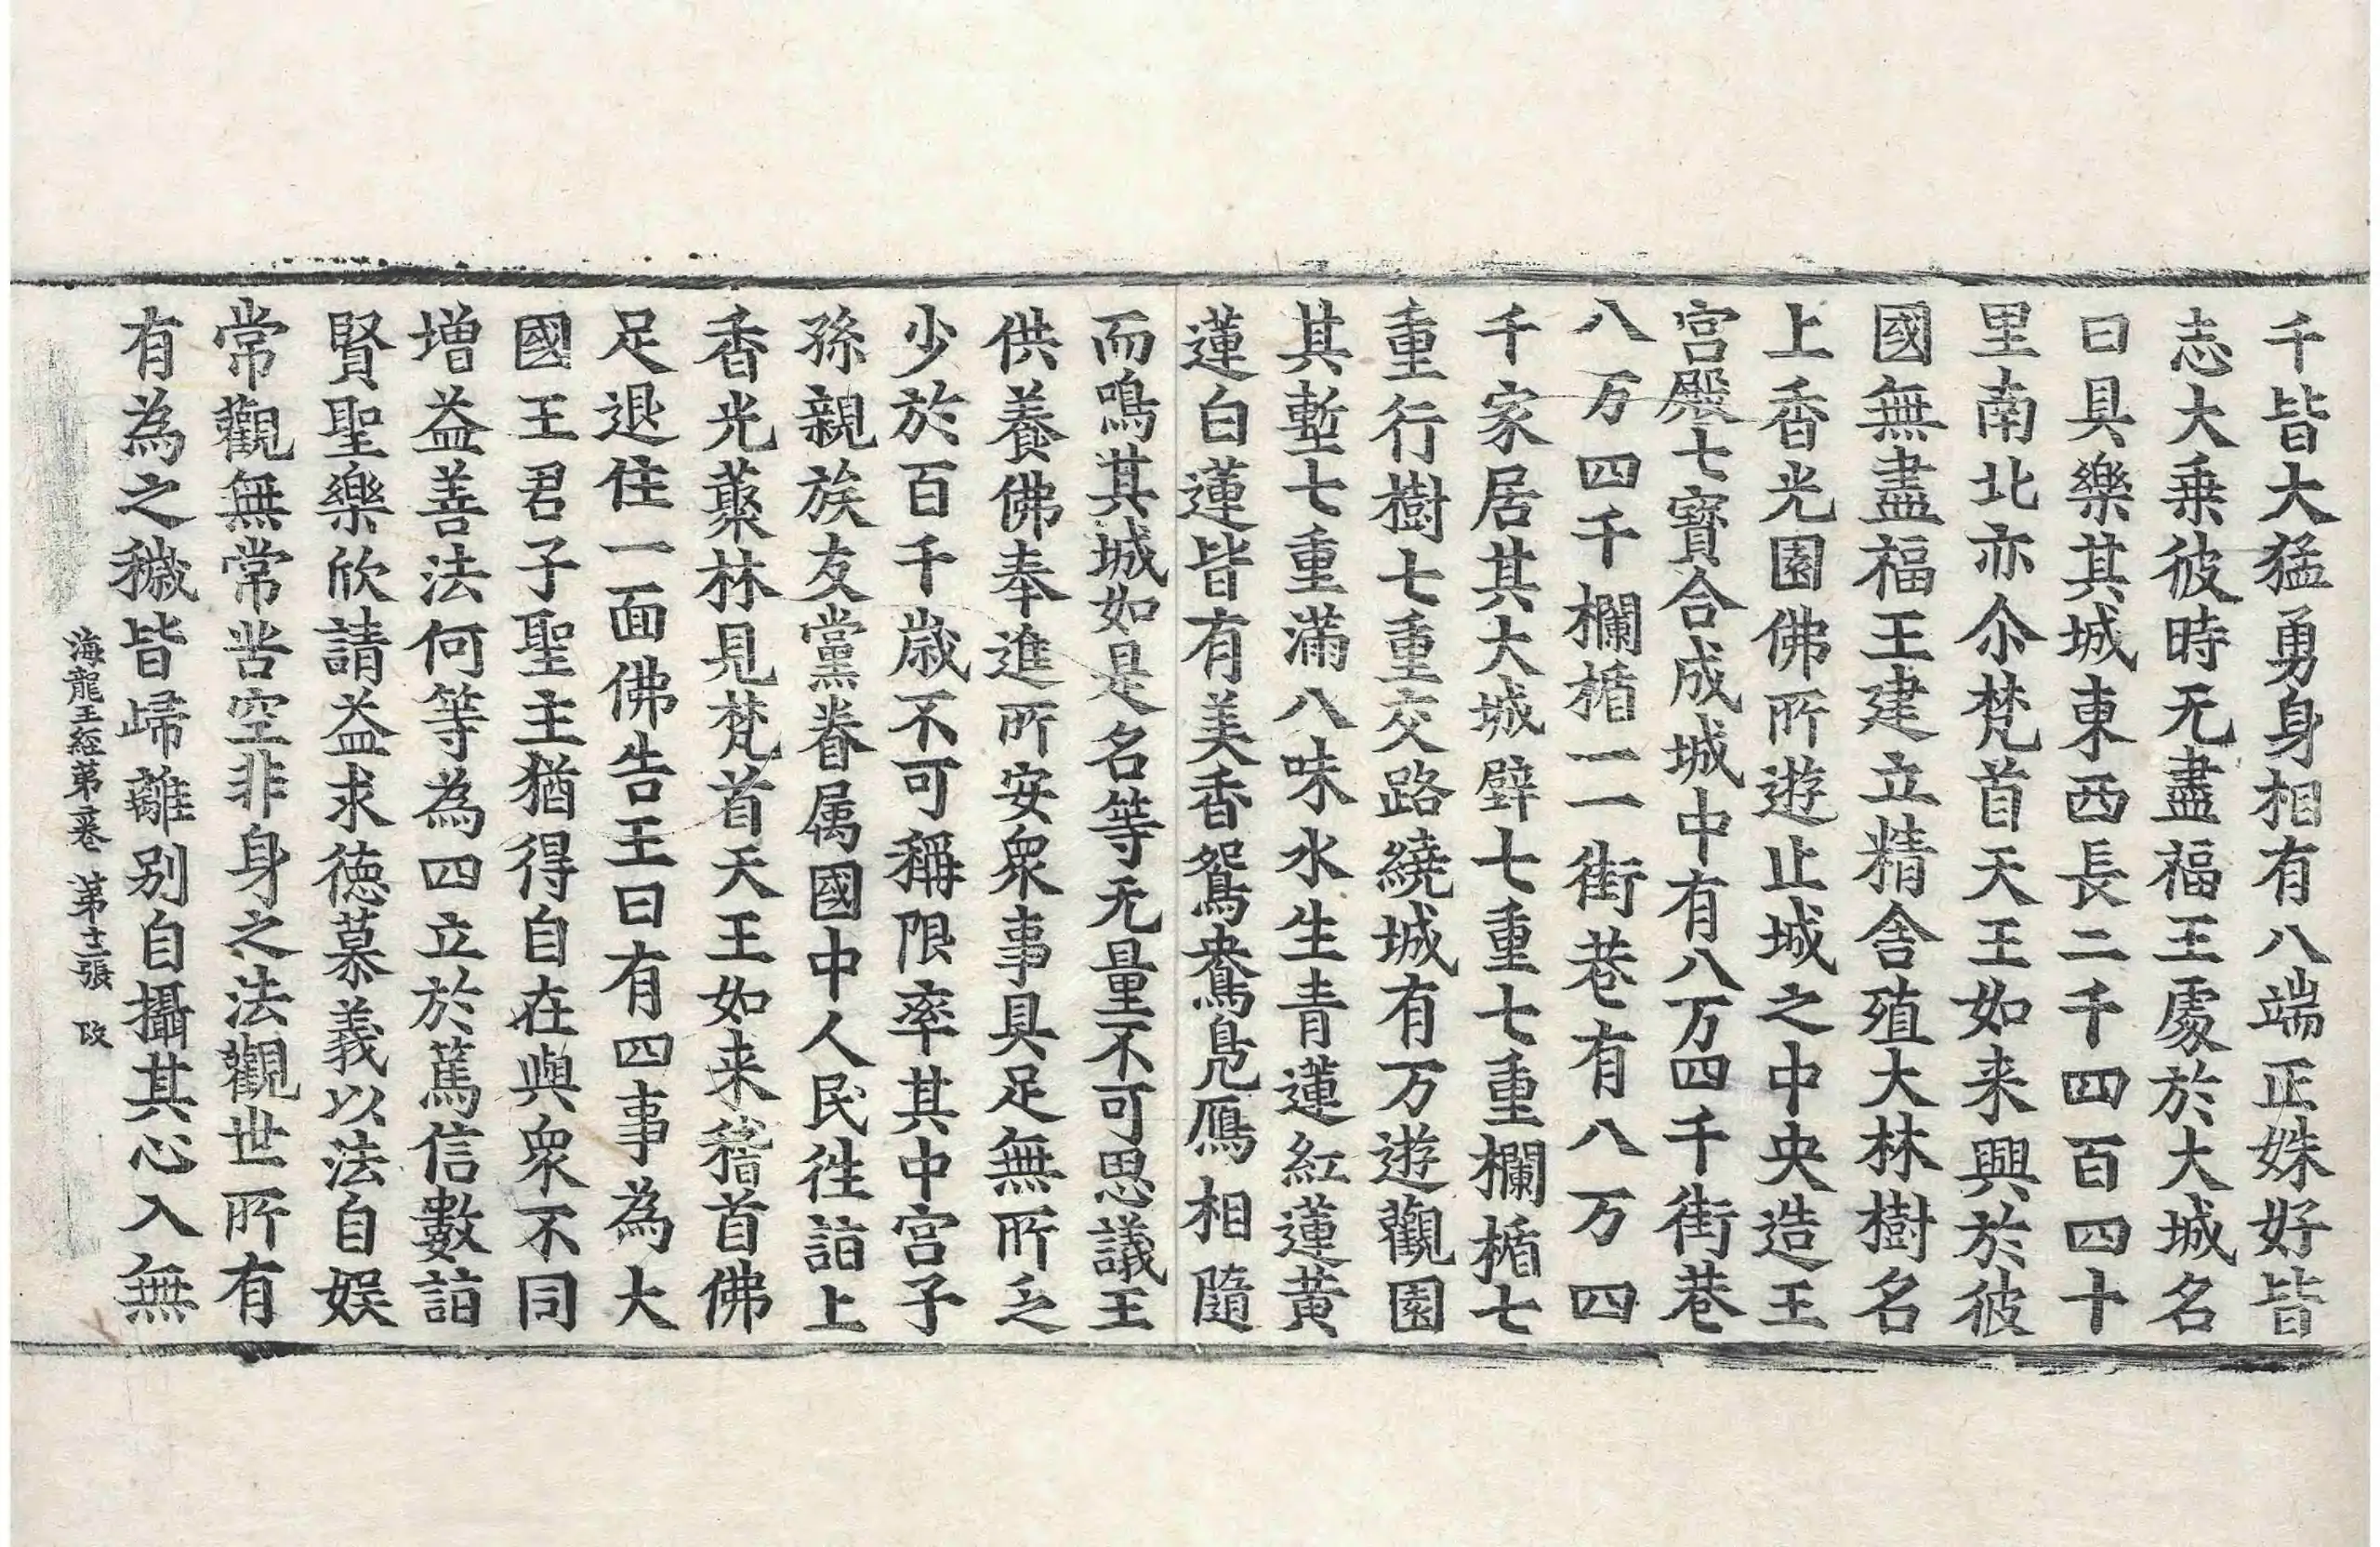 千皆大猛勇身相有八端正姝好皆
志大乗彼時无盡福王處於大城名
曰具樂其城東西長二千四百四十
里南北亦尒梵首天王如来興於彼
國無盡福王建立精舍殖大林樹名
上香光園佛所遊止城之中央造王
宮殿七寳合成城中有八万四千街巷
八万四千欄楯一一街巷有八万四
千家居其大城壁七重七重欄楯七
重行樹七重交路繞城有万遊觀園
其塹七重滿八味水生青蓮紅蓮黃
蓮白蓮皆有美香鴛鴦鳧鴈相隨
而鳴其城如是名等无量不可思議王
供養佛奉進所安衆事具足無所乏
少於百千歳不可稱限率其中宮子
孫親族友黨眷属國中人民徃詣上
香光藂林見梵首天王如来稽首佛
足退住一面佛告王曰有四事為大
國王君子聖主猶得自在與衆不同
增益善法何等為四立於篤信數詣
賢聖樂欣請益求德慕義以法自娯
常觀無常苦空非身之法觀世所有
有為之穢皆歸離別自攝其心入無
海龍王經第二卷 第十二張 改